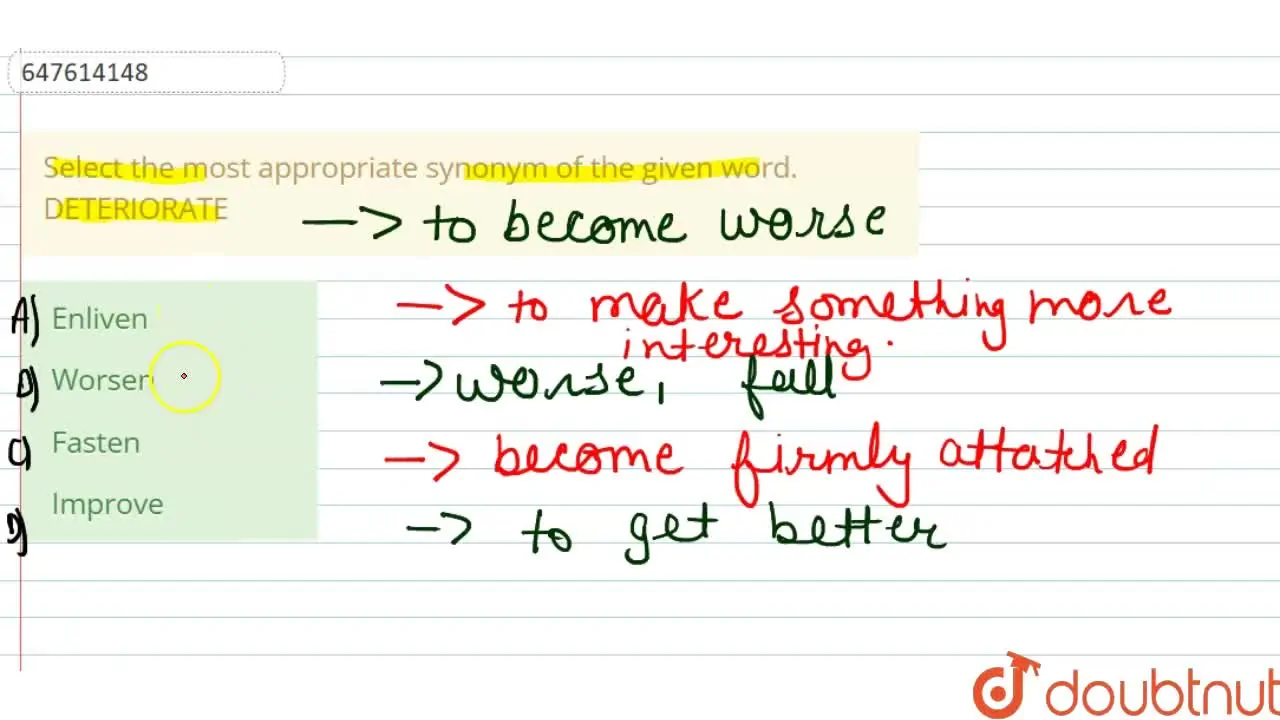 647614148
Select the most appropriate synonym of the given word.
DETERIORATE —> to become worse
A) Enliven —> to make something more
interesting.
D) Worsen —> worse, fall
C) Fasten —> become firmly attatched
D) Improve —> to get better
doubtnut